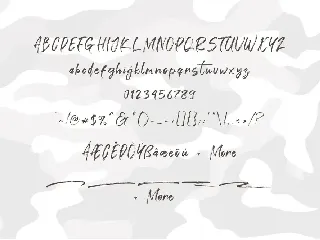 ABCDEFGHIJKLMNOPQRSTUVWXYZ
abcdefghijklmnopqrstuvwxyz
0123456789
~!@#$%^&*()-
ÆÇÈÐÕÝßàæëöü + More
+ More